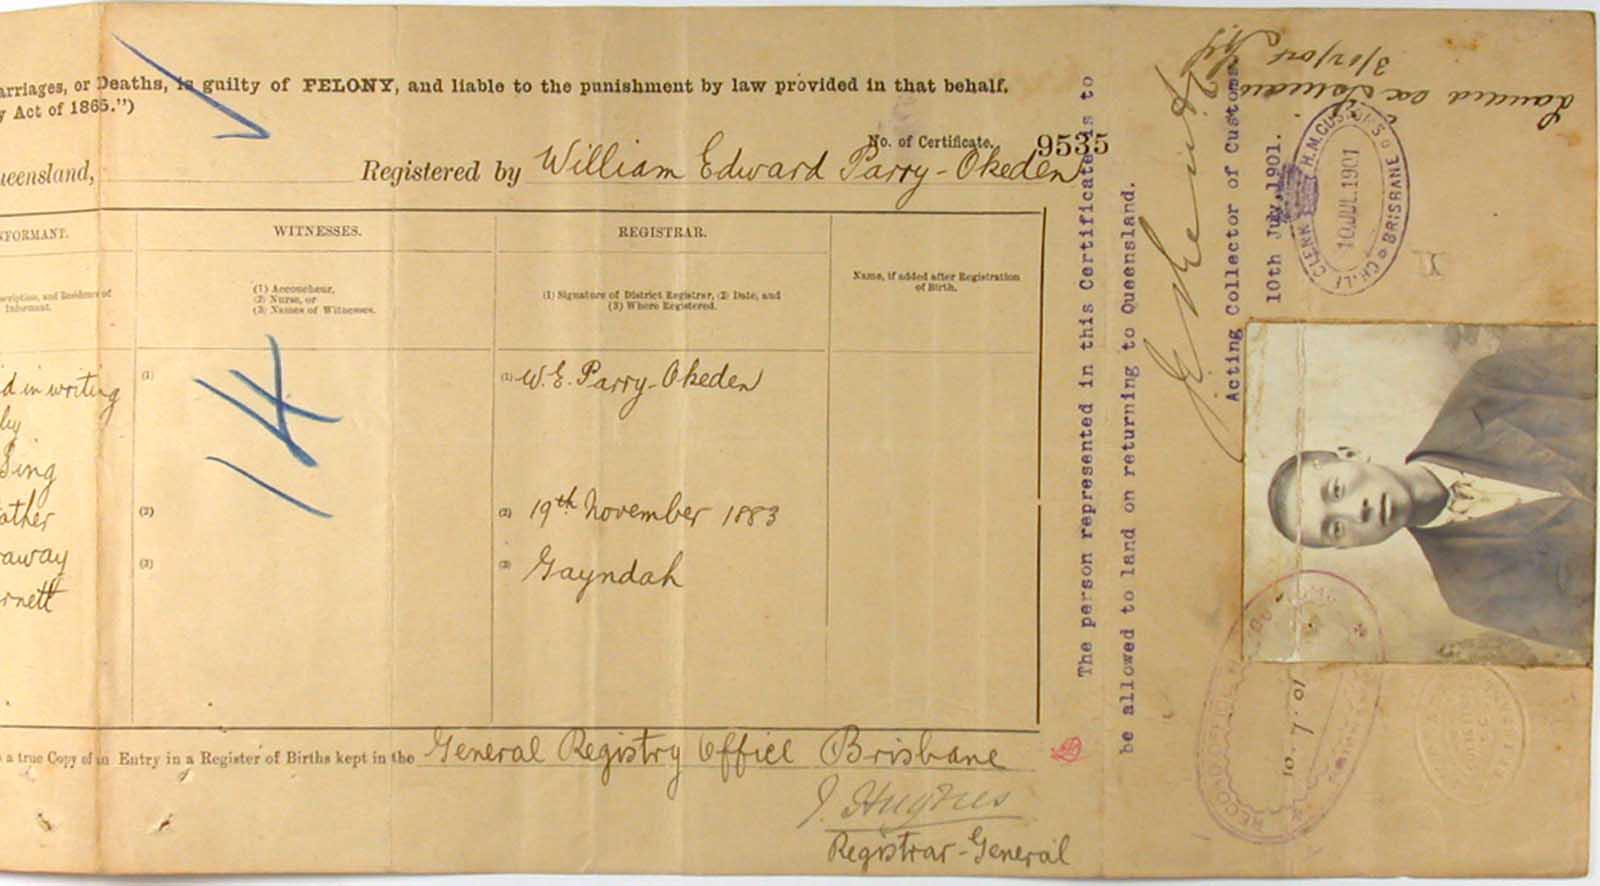 arriages, or Deaths, is guilty of FELONY, and liable to the punishment by law provided in that behalf.
y Act of 1865.")
No. of Certificate. 9535
ueensland, Registered by William Edward Parry-Okeden
NFORMANT. WITNESSES. REGISTRAR.
scription, and Residence of Informant.
(1) Accoucheur,
(2) Nurse, or
(3) Names of Witnesses.
(1) Signature of District Registrar, (2) Date, and
(3) Where Registered.
Name, if added after Registration
of Birth.
d in writing (1) (1) W. E. Parry-Okeden
by
Sing
ather (2) (2) 19th November 1883
raway (3) (3) Gayndah
rnett
14
a true Copy of an Entry in a Register of Births kept in the General Registry Office Brisbane
J. Hughes
Registrar-General
The person represented in this Certificate is to
be allowed to land on returning to Queensland.
Acting Collector of Customs
10th July, 1901.
H.M. CUSTOMS BRISBANE
10 JUL 1901
Landed ex
10.7.01